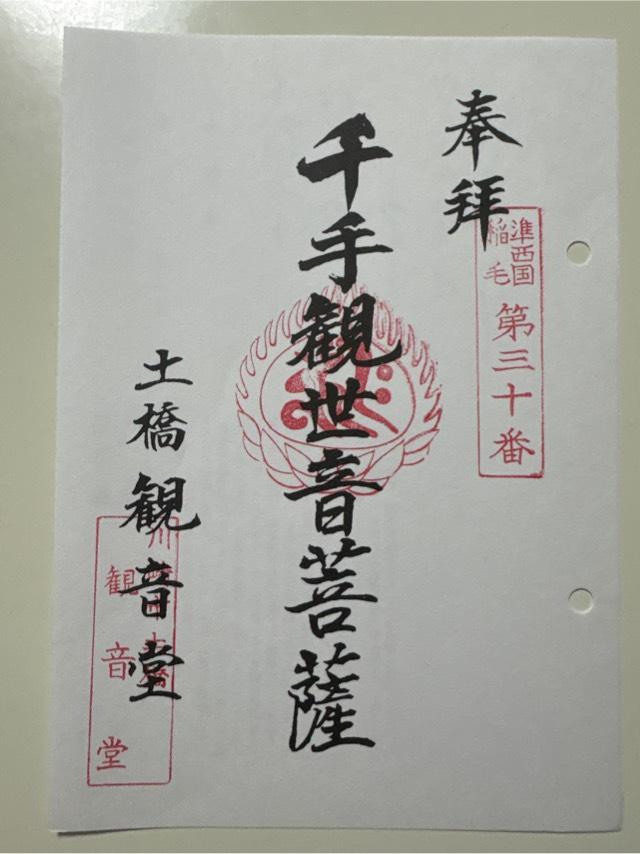 奉拝
準西国
稲毛
第三十番
千手観世音菩薩
土橋観音堂
観音堂